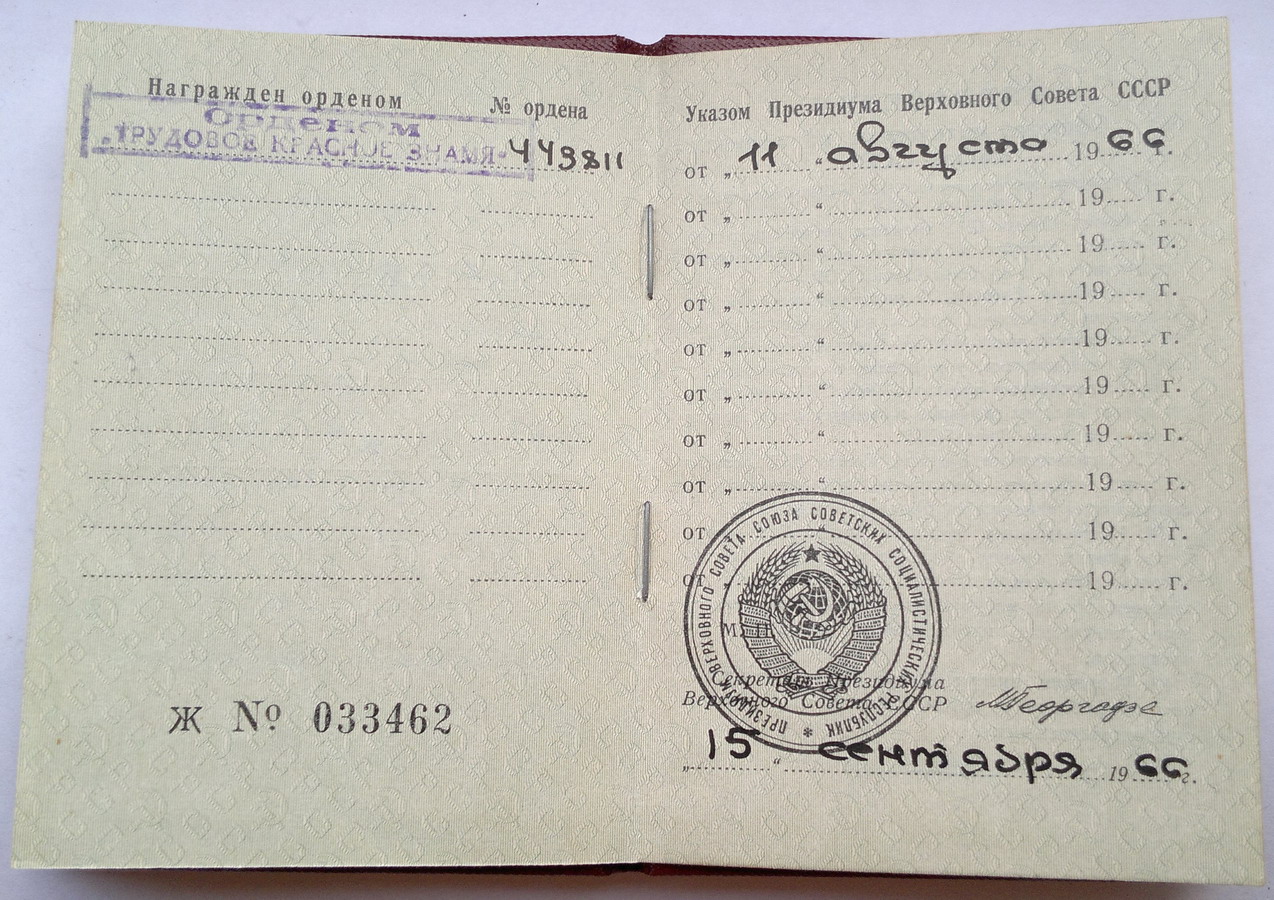 Награжден орденом № ордена
Орденом
„ТРУДОВОЕ КРАСНОЕ ЗНАМЯ“ 449811
Ж № 033462
Указом Президиума Верховного Совета СССР
от „ 11 “ августа 1966 г.
от „ “ 19 г.
от „ “ 19 г.
от „ “ 19 г.
от „ “ 19 г.
от „ “ 19 г.
от „ “ 19 г.
от „ “ 19 г.
от „ “ 19 г.
от „ 19 г.
ПРЕЗИДИУМ ВЕРХОВНОГО СОВЕТА СОЮЗА СОВЕТСКИХ СОЦИАЛИСТИЧЕСКИХ РЕСПУБЛИК *
М. П.
Секретарь Президиума
Верховного Совета СССР МГеоргадзе
„ 15 “ сентября 1966 г.